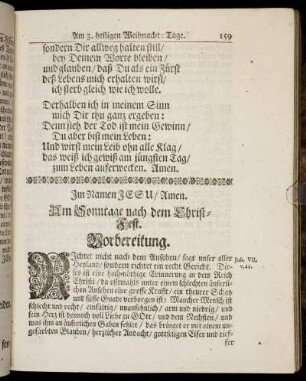 Am 3. heiligen Weihnacht-Tage. 159
sondern Dir allweg halten still/
bey Deinem Worte bleiben/
und glauben/ daß Du als ein Fürst
deß Lebens mich erhalten wirst/
ich sterb gleich wie ich wolle.
Derhalben ich in meinem Sinn
mich Dir thu ganz ergeben:
Denn sieh der Tod ist mein Gewinn/
Du aber bist mein Leben:
Und wirst mein Leib ohn alle Klag/
das weiß ich gewiß am jüngsten Tag/
zum Leben auferwecken. Amen.
Im Namen JESU/ Amen.
Am Sonntage nach dem Christ-
Fest.
Vorbereitung.
RIchtet nicht nach dem Ansehen/ sagt unser aller
Heyland/ sondern richtet ein recht Gericht. Die-
ses ist eine hochnöthige Erinnerung in dem Reich
Christi/ da oftmahls unter einem schlechten äuserli-
chen Ansehen eine grosse Krafft/ ein theurer Schatz
und süsse Gnade verborgen ist: Mancher Mensch ist
schlecht und recht/ einfältig/ unansehnlich/ arm und niedrig/ und
sein Hertz ist dennoch voll Liebe zu GOtt/ und dem Nechsten/ und
was ihm an äuserlichen Gaben fehlet/ das bringet er mit einem un-
gefärbten Glauben/ hertzlicher Andacht/ gottseligen Eifer und tief-
fer
Joh. VII.
v. 24.